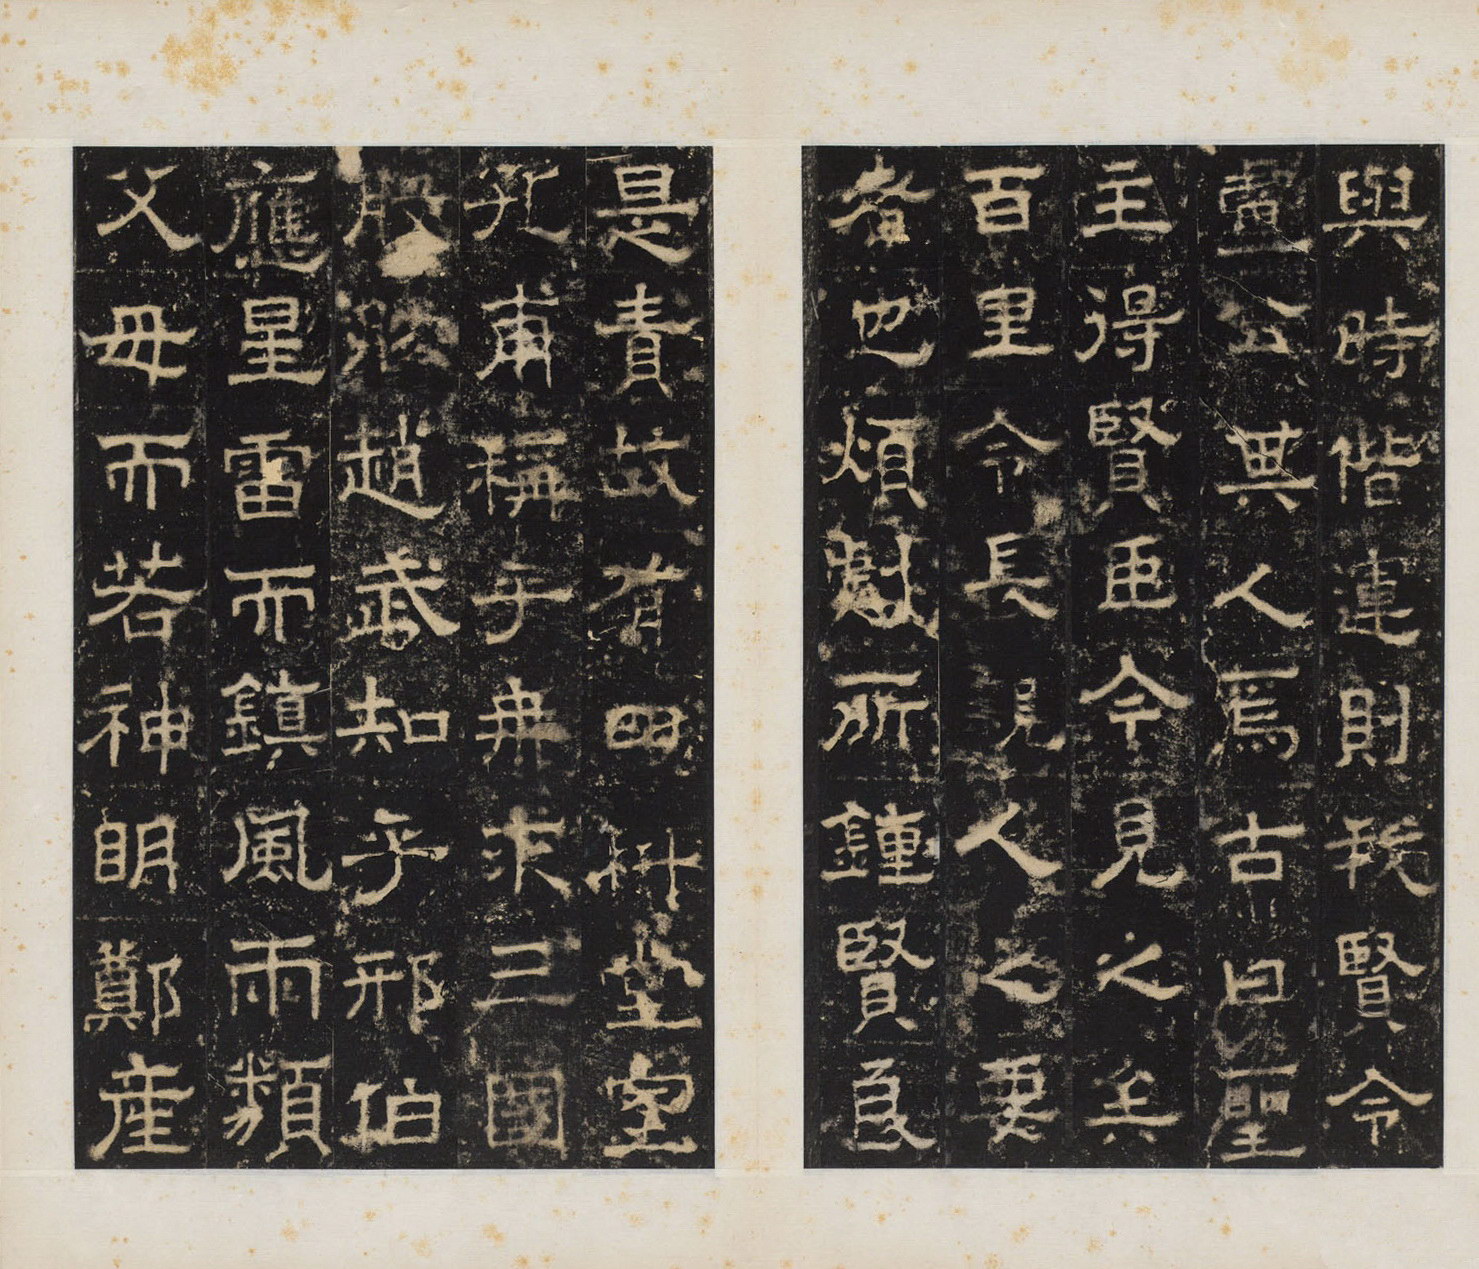 與時偕運則我賢令
公其人焉古曰聖
主得賢臣今見之矣
百里令長親人之要
者也煩劇所鍾賢良
是責故有堂室
孔甫稱乎冉求三國
股肱趙武知乎邢伯
應星雷而鎮風雨類
父母而若神明鄭產